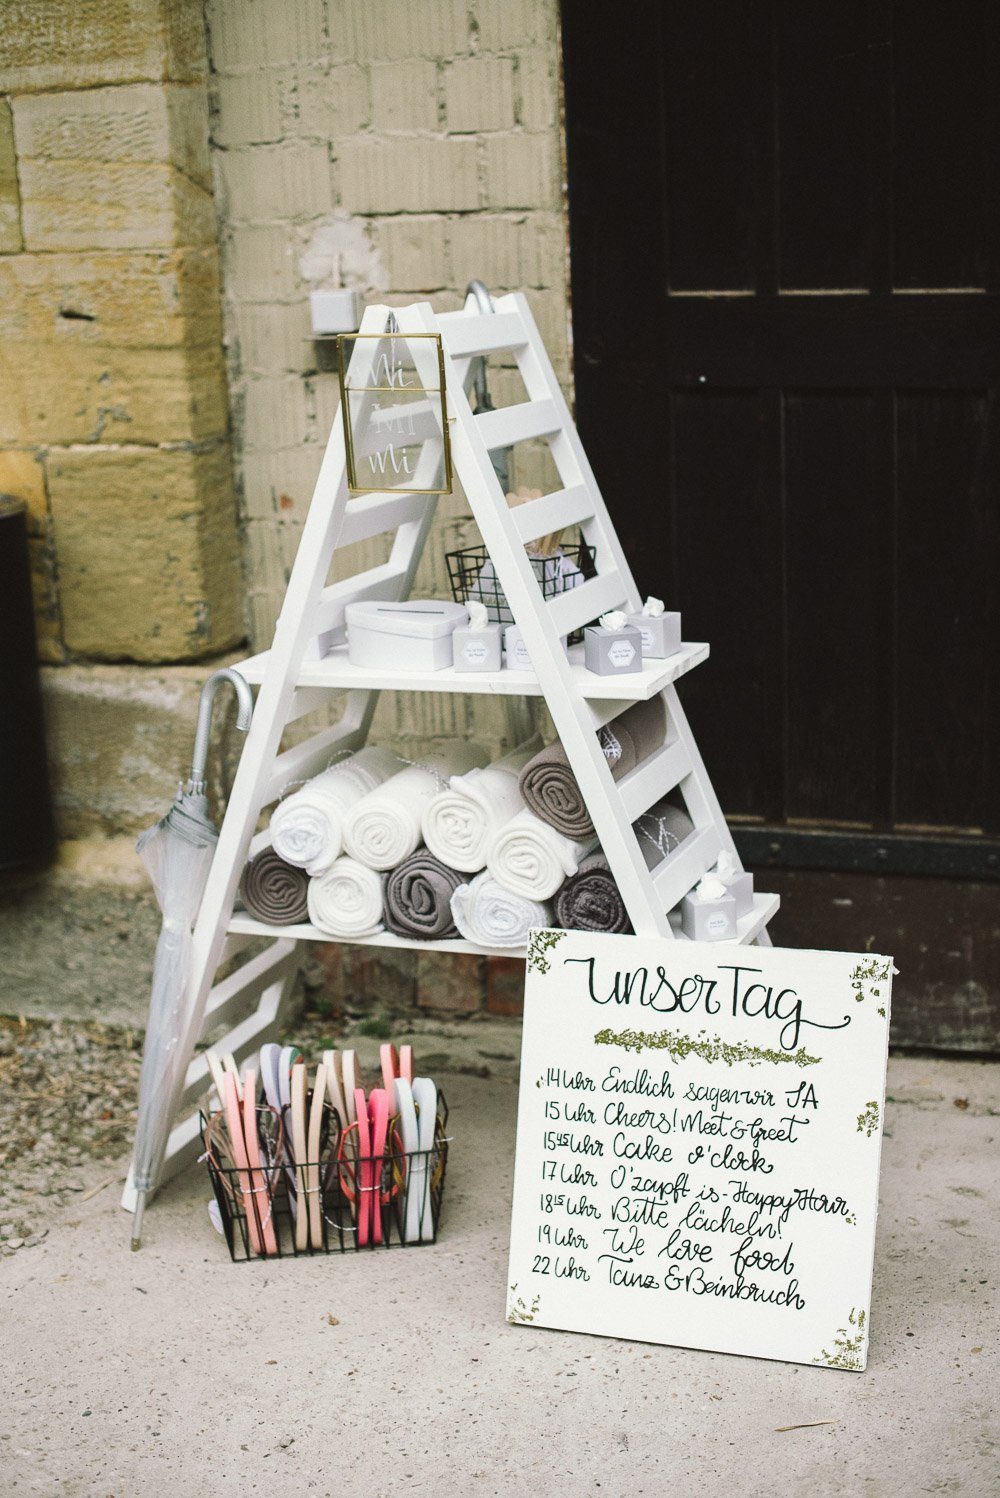 Mi
Mi
Mi
Unser Tag
14 Uhr Endlich sagen wir JA
15 Uhr Cheers! Meet & Greet
15⁴⁵ Uhr Cake o'clock
17 Uhr O'zapft is - Happy Hour
18¹⁵ Uhr Bitte lächeln!
19 Uhr We love food
22 Uhr Tanz & Beinbruch